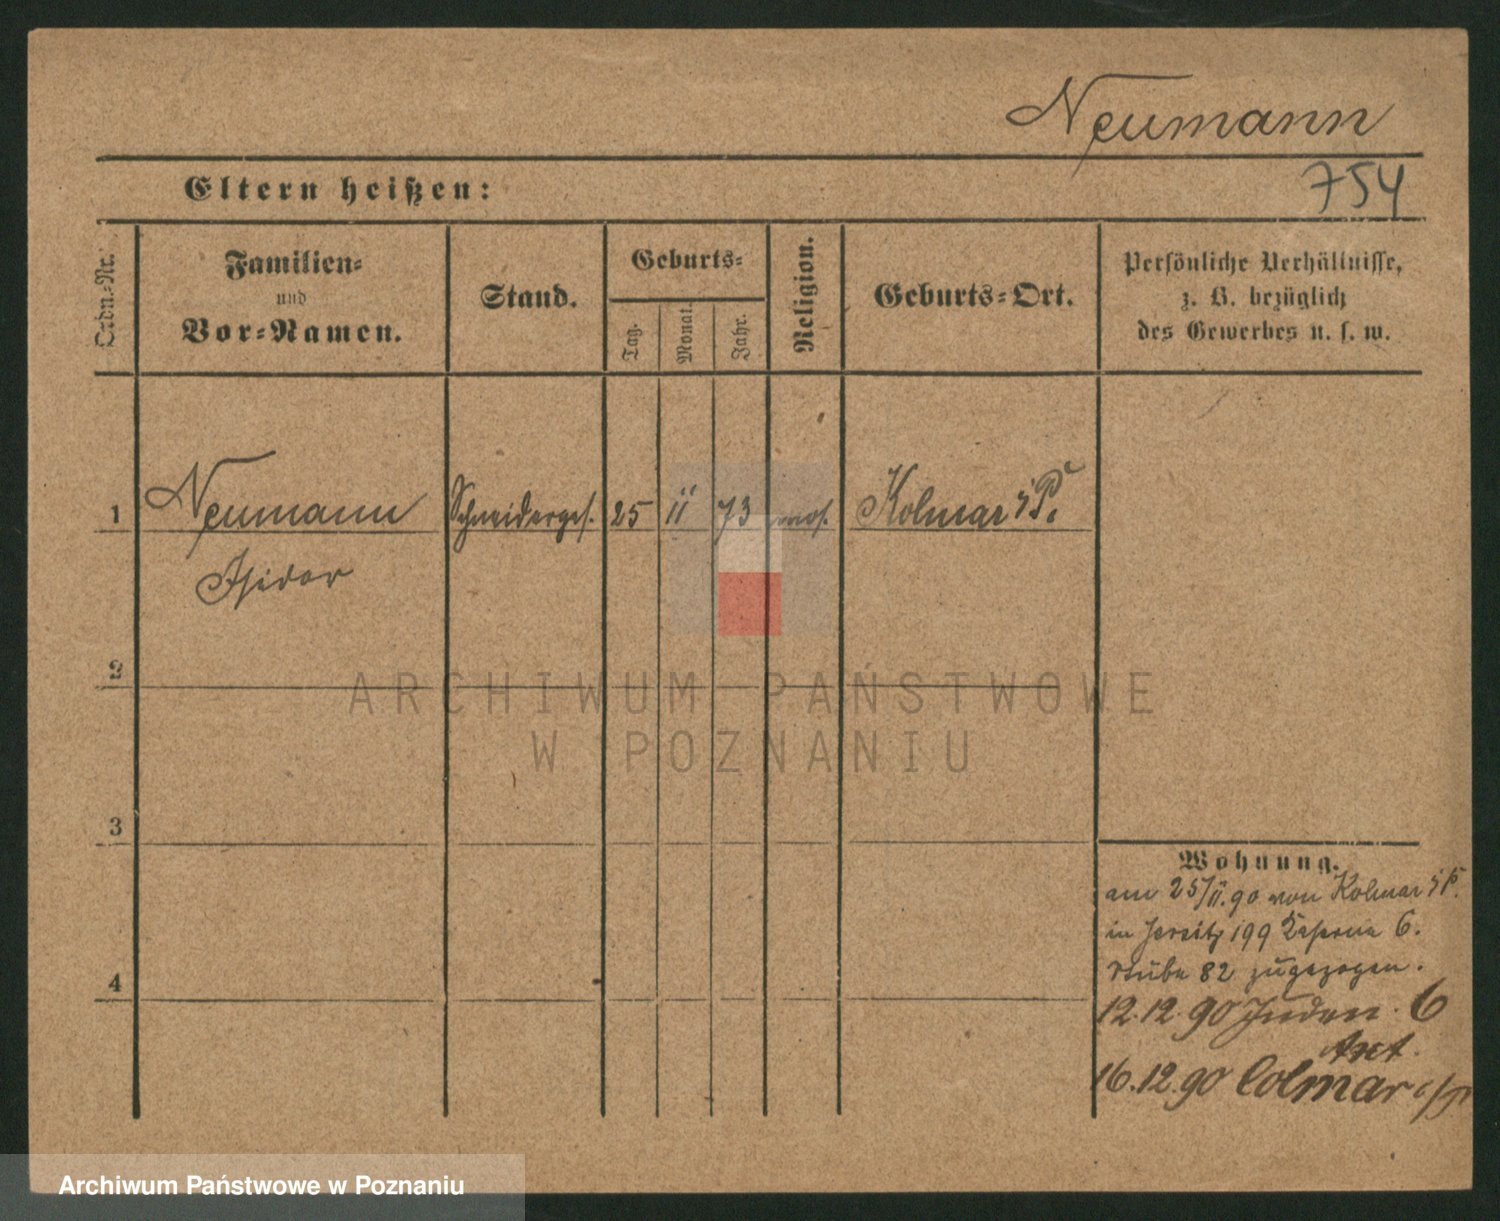 Neumann
754
Eltern heißen:
Ordn.-Nr.
Familien-
und
Vor-Namen.
Stand.
Geburts-
Tag.
Monat.
Jahr.
Religion.
Geburts-Ort.
Persönliche Verhältnisse,
z. B. bezüglich
des Gewerbes u. s. w.
1 Neumann Schneiderges. 25 11 73 mos. Kolmar i/P.
Isidor
2
3
4
Wohnung.
am 25/11.90 von Kolmar i/P.
in Jersitz 199 Kaserne 6.
Stube 82 zugezogen.
12.12.90 Juden 6
16.12.90 Colmar i/P
ARCHIWUM PAŃSTWOWE
W POZNANIU
Archiwum Państwowe w Poznaniu